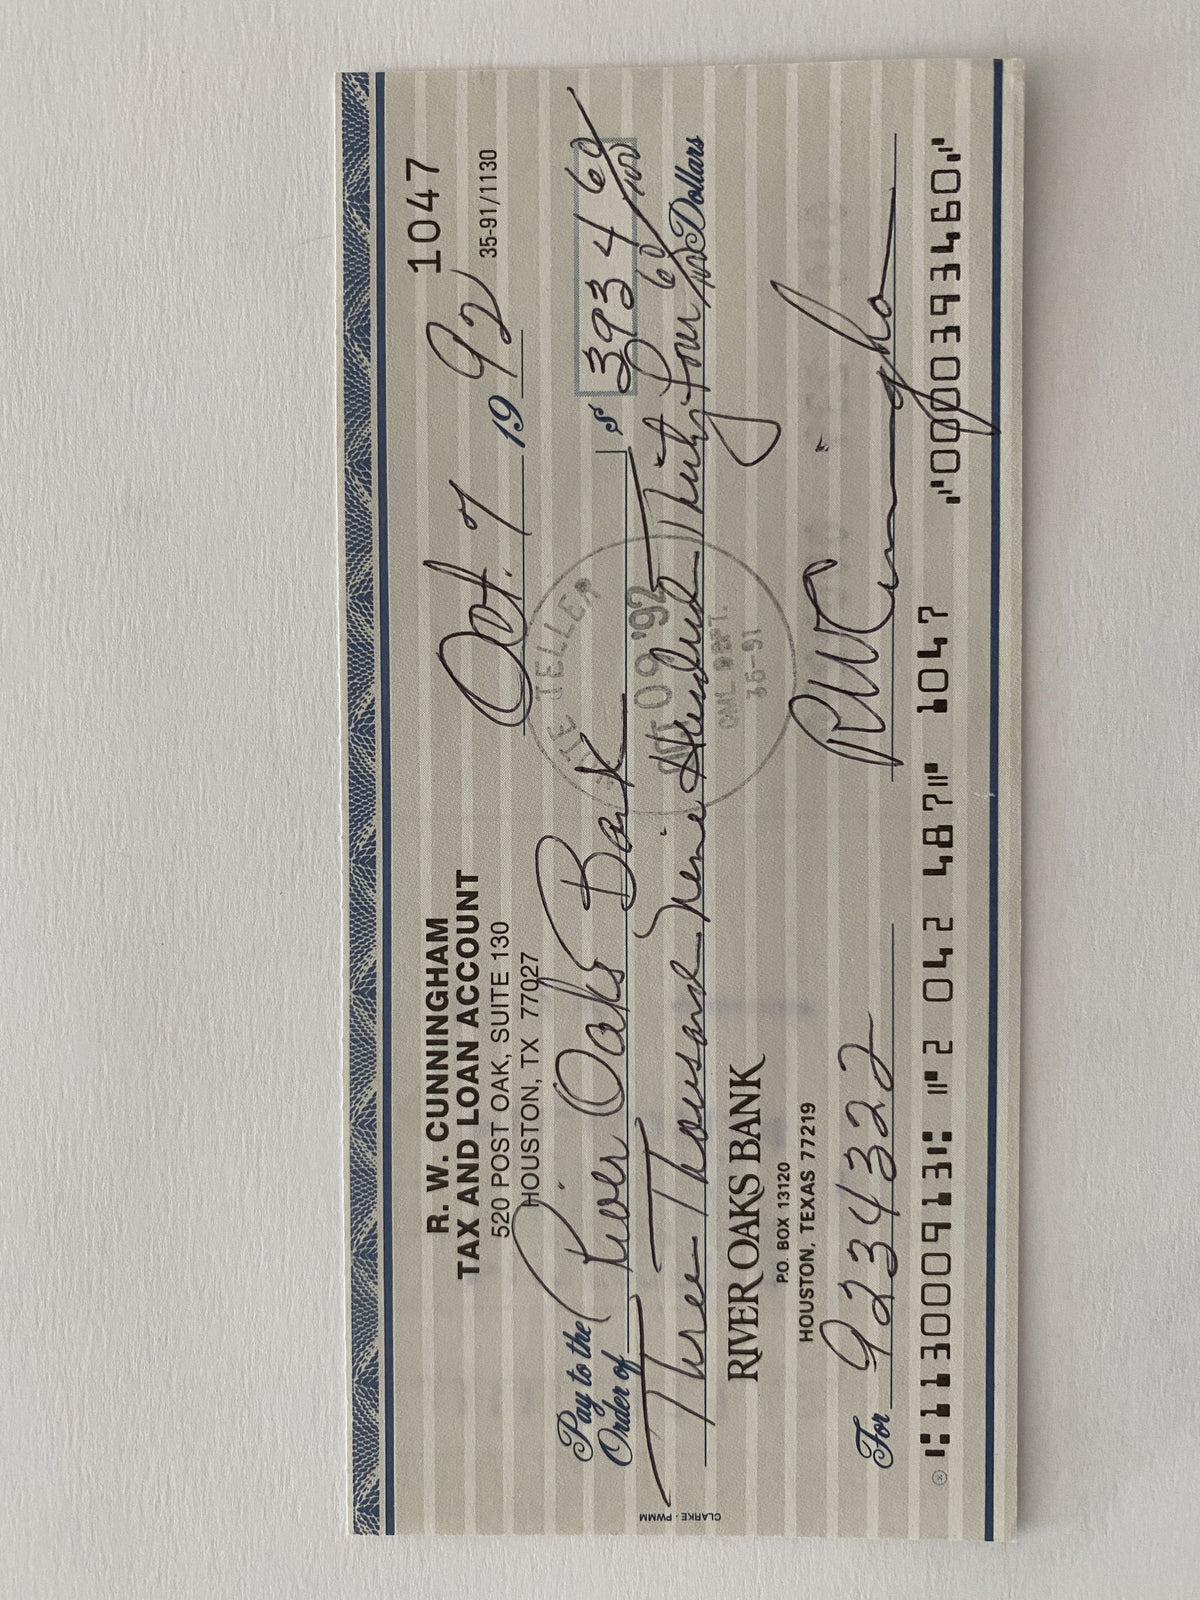 R. W. CUNNINGHAM
TAX AND LOAN ACCOUNT
520 POST OAK, SUITE 130
HOUSTON, TX 77027
1047
35-91/1130
Oct. 7 19 92
Pay to the Order of River Oaks Bank $ 3934 60/100
Three Thousand Nine Hundred Thirty Four 60/100 Dollars
TELLER
OCT 09 '92
35-91
RIVER OAKS BANK
P.O. BOX 13120
HOUSTON, TEXAS 77219
For 9234322 RW Cunningham
⑆113000913⑆ ⑈2 042 487⑈ 1047 ⑈0000393460⑈
CLARKE - PWMM